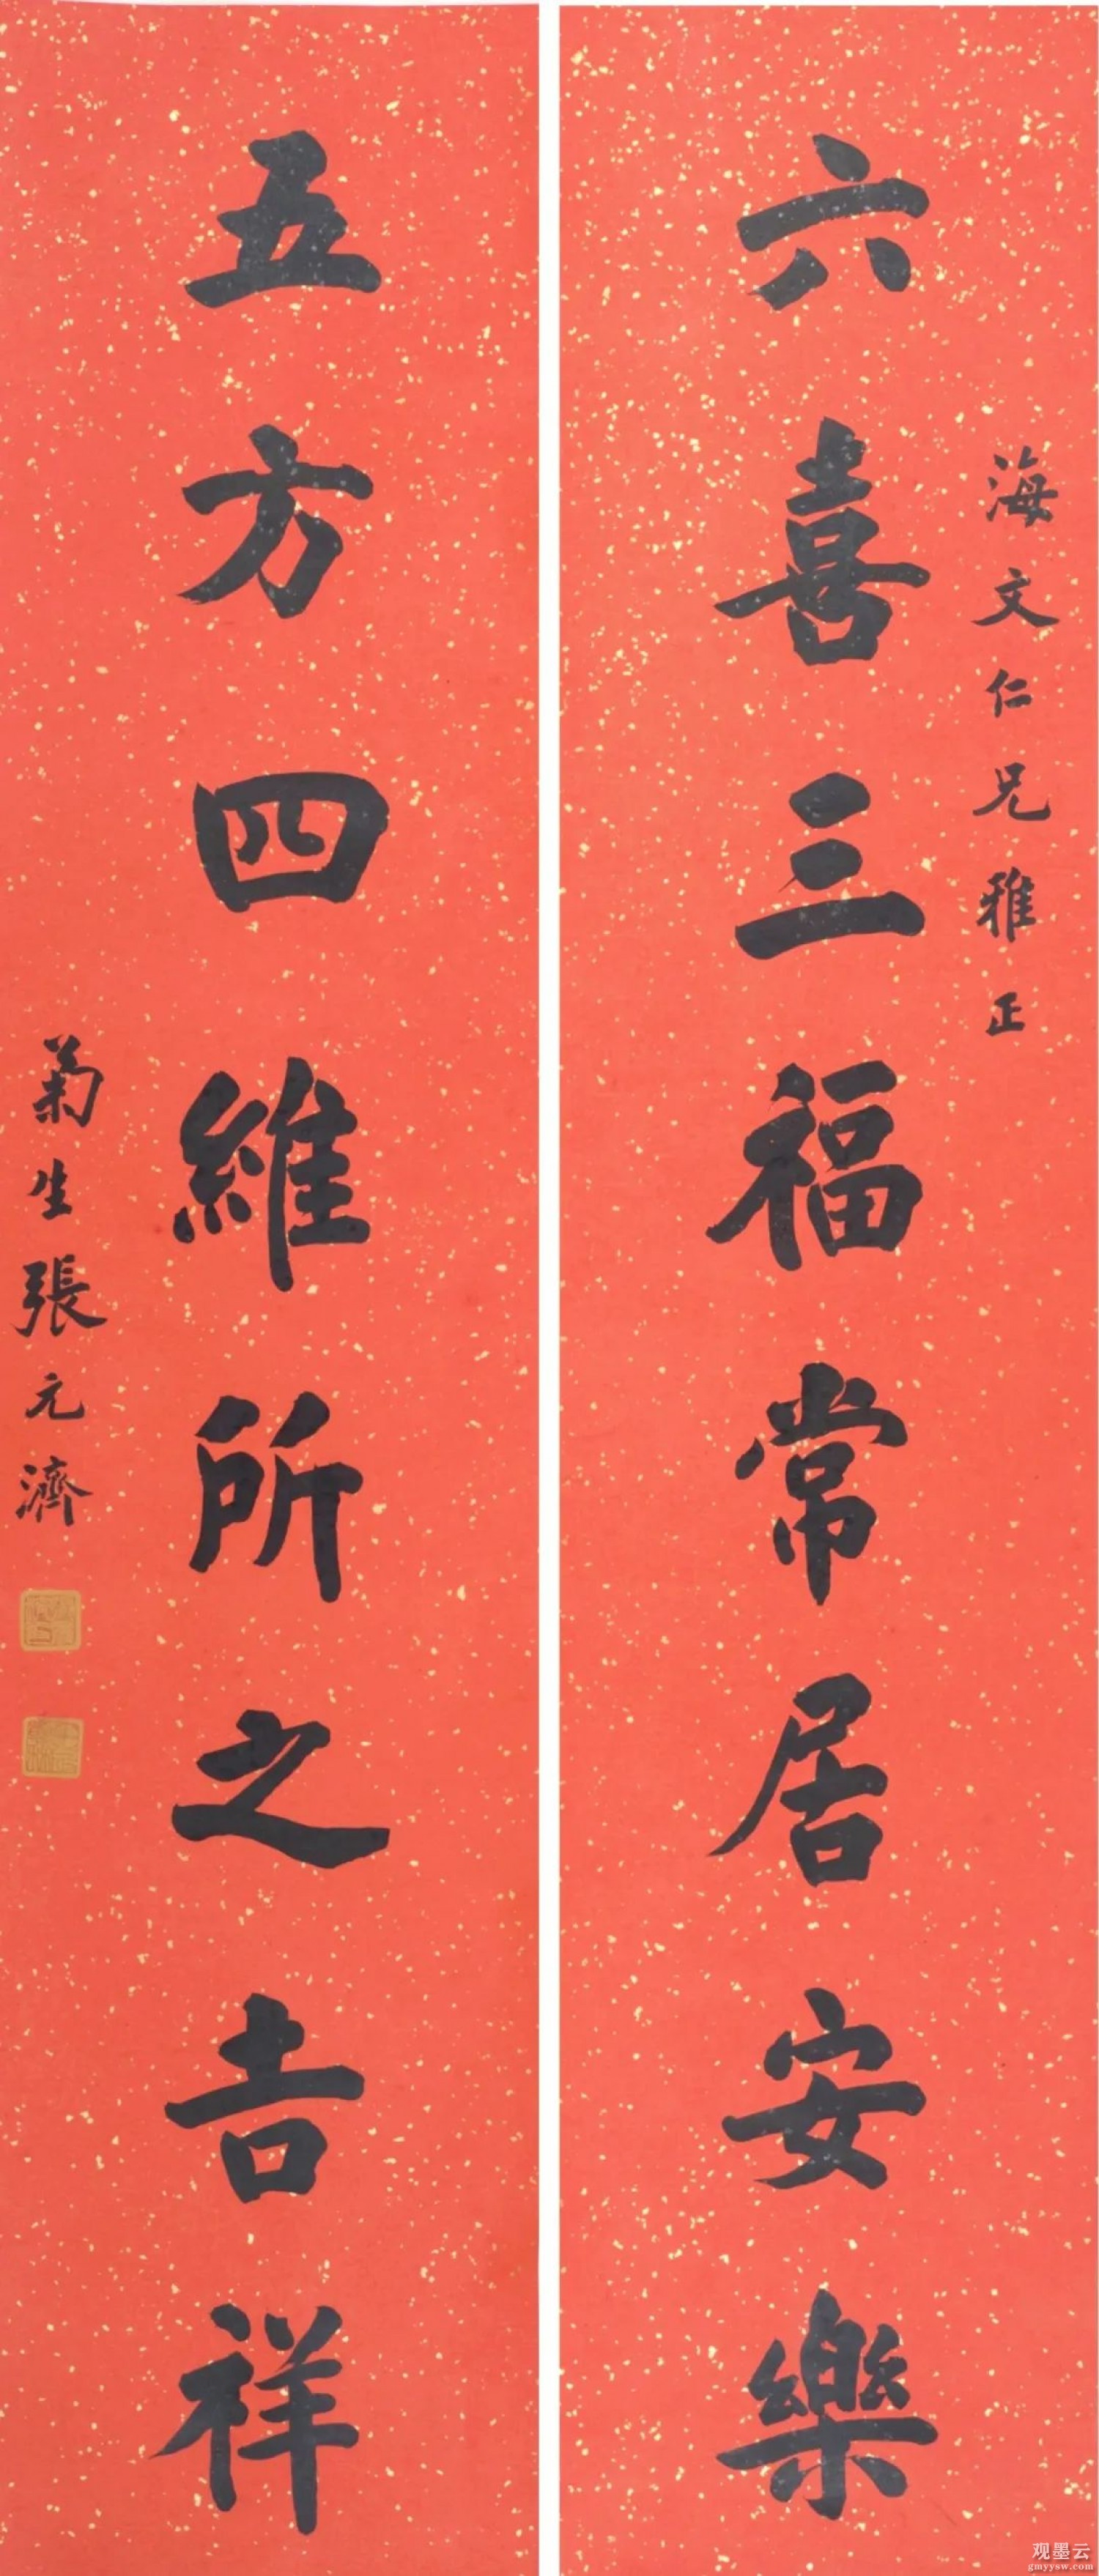 海文仁兄雅正
六喜三福常居安樂
五方四維所之吉祥
菊生張元濟
观墨云
gmyysw.com